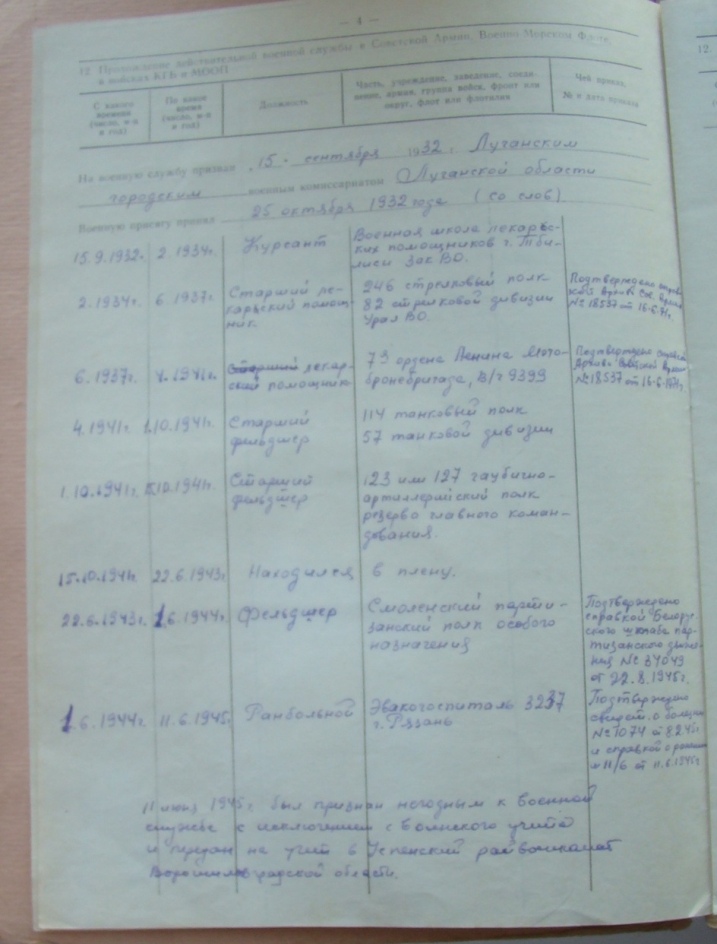 — 4 —
12. Прохождение действительной военной службы в Советской Армии, Военно-Морском Флоте,
в войсках КГБ и МООП
С какого
времени
(число, м-ц
и год)
По какое
время
(число, м-ц
и год)
Должность
Часть, учреждение, заведение, соеди-
нение, армия, группа войск, фронт или
округ, флот или флотилия
Чей приказ,
№ и дата приказа
На военную службу призван 15. сентября 1932 г. Луганским
городским военным комиссариатом Луганской области
Военную присягу принял 25 октября 1932 года (со слов)
15.9.1932г. 2.1934г. Курсант Военная школа лекарс-
ких помощников г. Тби-
лиси ЗакВО.
2.1934г. 6.1937г. Старший ле-
карский помощ-
ник. 246 стрелковый полк
82 стрелковой дивизии
УралВО. Подтверждено
№ 18537 от 16-6-71г.
6.1937г. 4.1941г. Старший лекар-
ский помощник 73 ордена Ленина мото-
бронебригада, В/ч 9393 Подтверждено
№ 18537 от 16-6-1971г.
4.1941г. 1.10.1941г. Старший
фельдшер 114 танковый полк
57 танковой дивизии
1.10.1941г. 15.10.1941г. Старший
фельдшер 123 или 127 гаубично-
артиллерийский полк
резерва главного коман-
дования.
15.10.1941г. 22.6.1943г. Находился в плену.
22.6.1943г. 1.6.1944г. Фельдшер Смоленский парти-
занский полк особого
назначения Подтверждено
справкой Белорус-
ского штаба пар-
тизанского движе-
ния № 34043
от 22.8.1945г.
1.6.1944г. 11.6.1945г. Ранбольной Эвакогоспиталь 3237
г. Рязань Подтверждено
свидет. о болезни
№ 1074
и справкой о ранении
№ 11/6 от 11.6.1945г
11 июня 1945г. был признан негодным к военной
службе с исключением с воинского учета
и передан на учет в Успенский райвоенкомат
Ворошиловградской области.